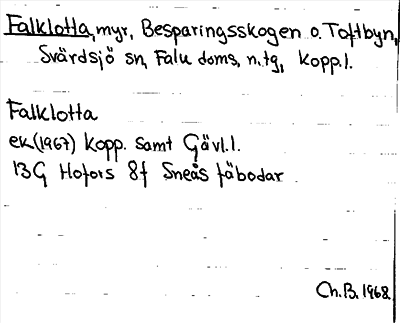 Falklotta, myr, Besparingsskogen o. Toftbyn,
Svärdsjö sn, Falu doms. n. tg, Kopp.l.
Falklotta
ek(1967) Kopp. samt Gävl.l.
13G Hofors 8f Sneås fäbodar
Ch.B. 1968.